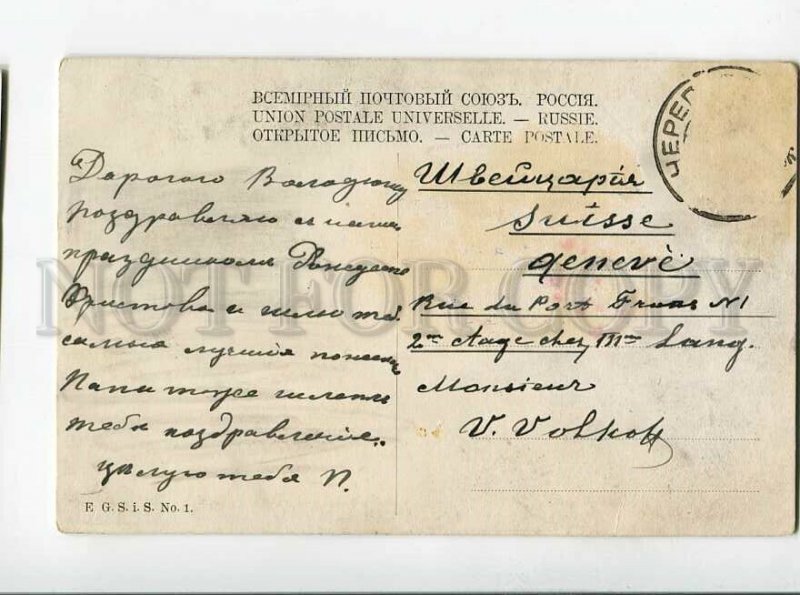 ВСЕМІРНЫЙ ПОЧТОВЫЙ СОЮЗЪ. РОССІЯ.
UNION POSTALE UNIVERSELLE. — RUSSIE.
ОТКРЫТОЕ ПИСЬМО. — CARTE POSTALE.
ЧЕРЕП
Дорогого Володюшку
поздравляю с нашим
праздником Рождество
Христова и шлю тебе
самыя лучшія пожелания
Папа тоже шлетъ
тебе поздравление.
цѣлую тебя П.
Швейцарія
Suisse
Genevè
Rue du Port Franc N1
2me Aage chez Mme Lang.
Monsieur
V. Volkoff
E G. S. i. S. No. 1.
NOT FOR COPY